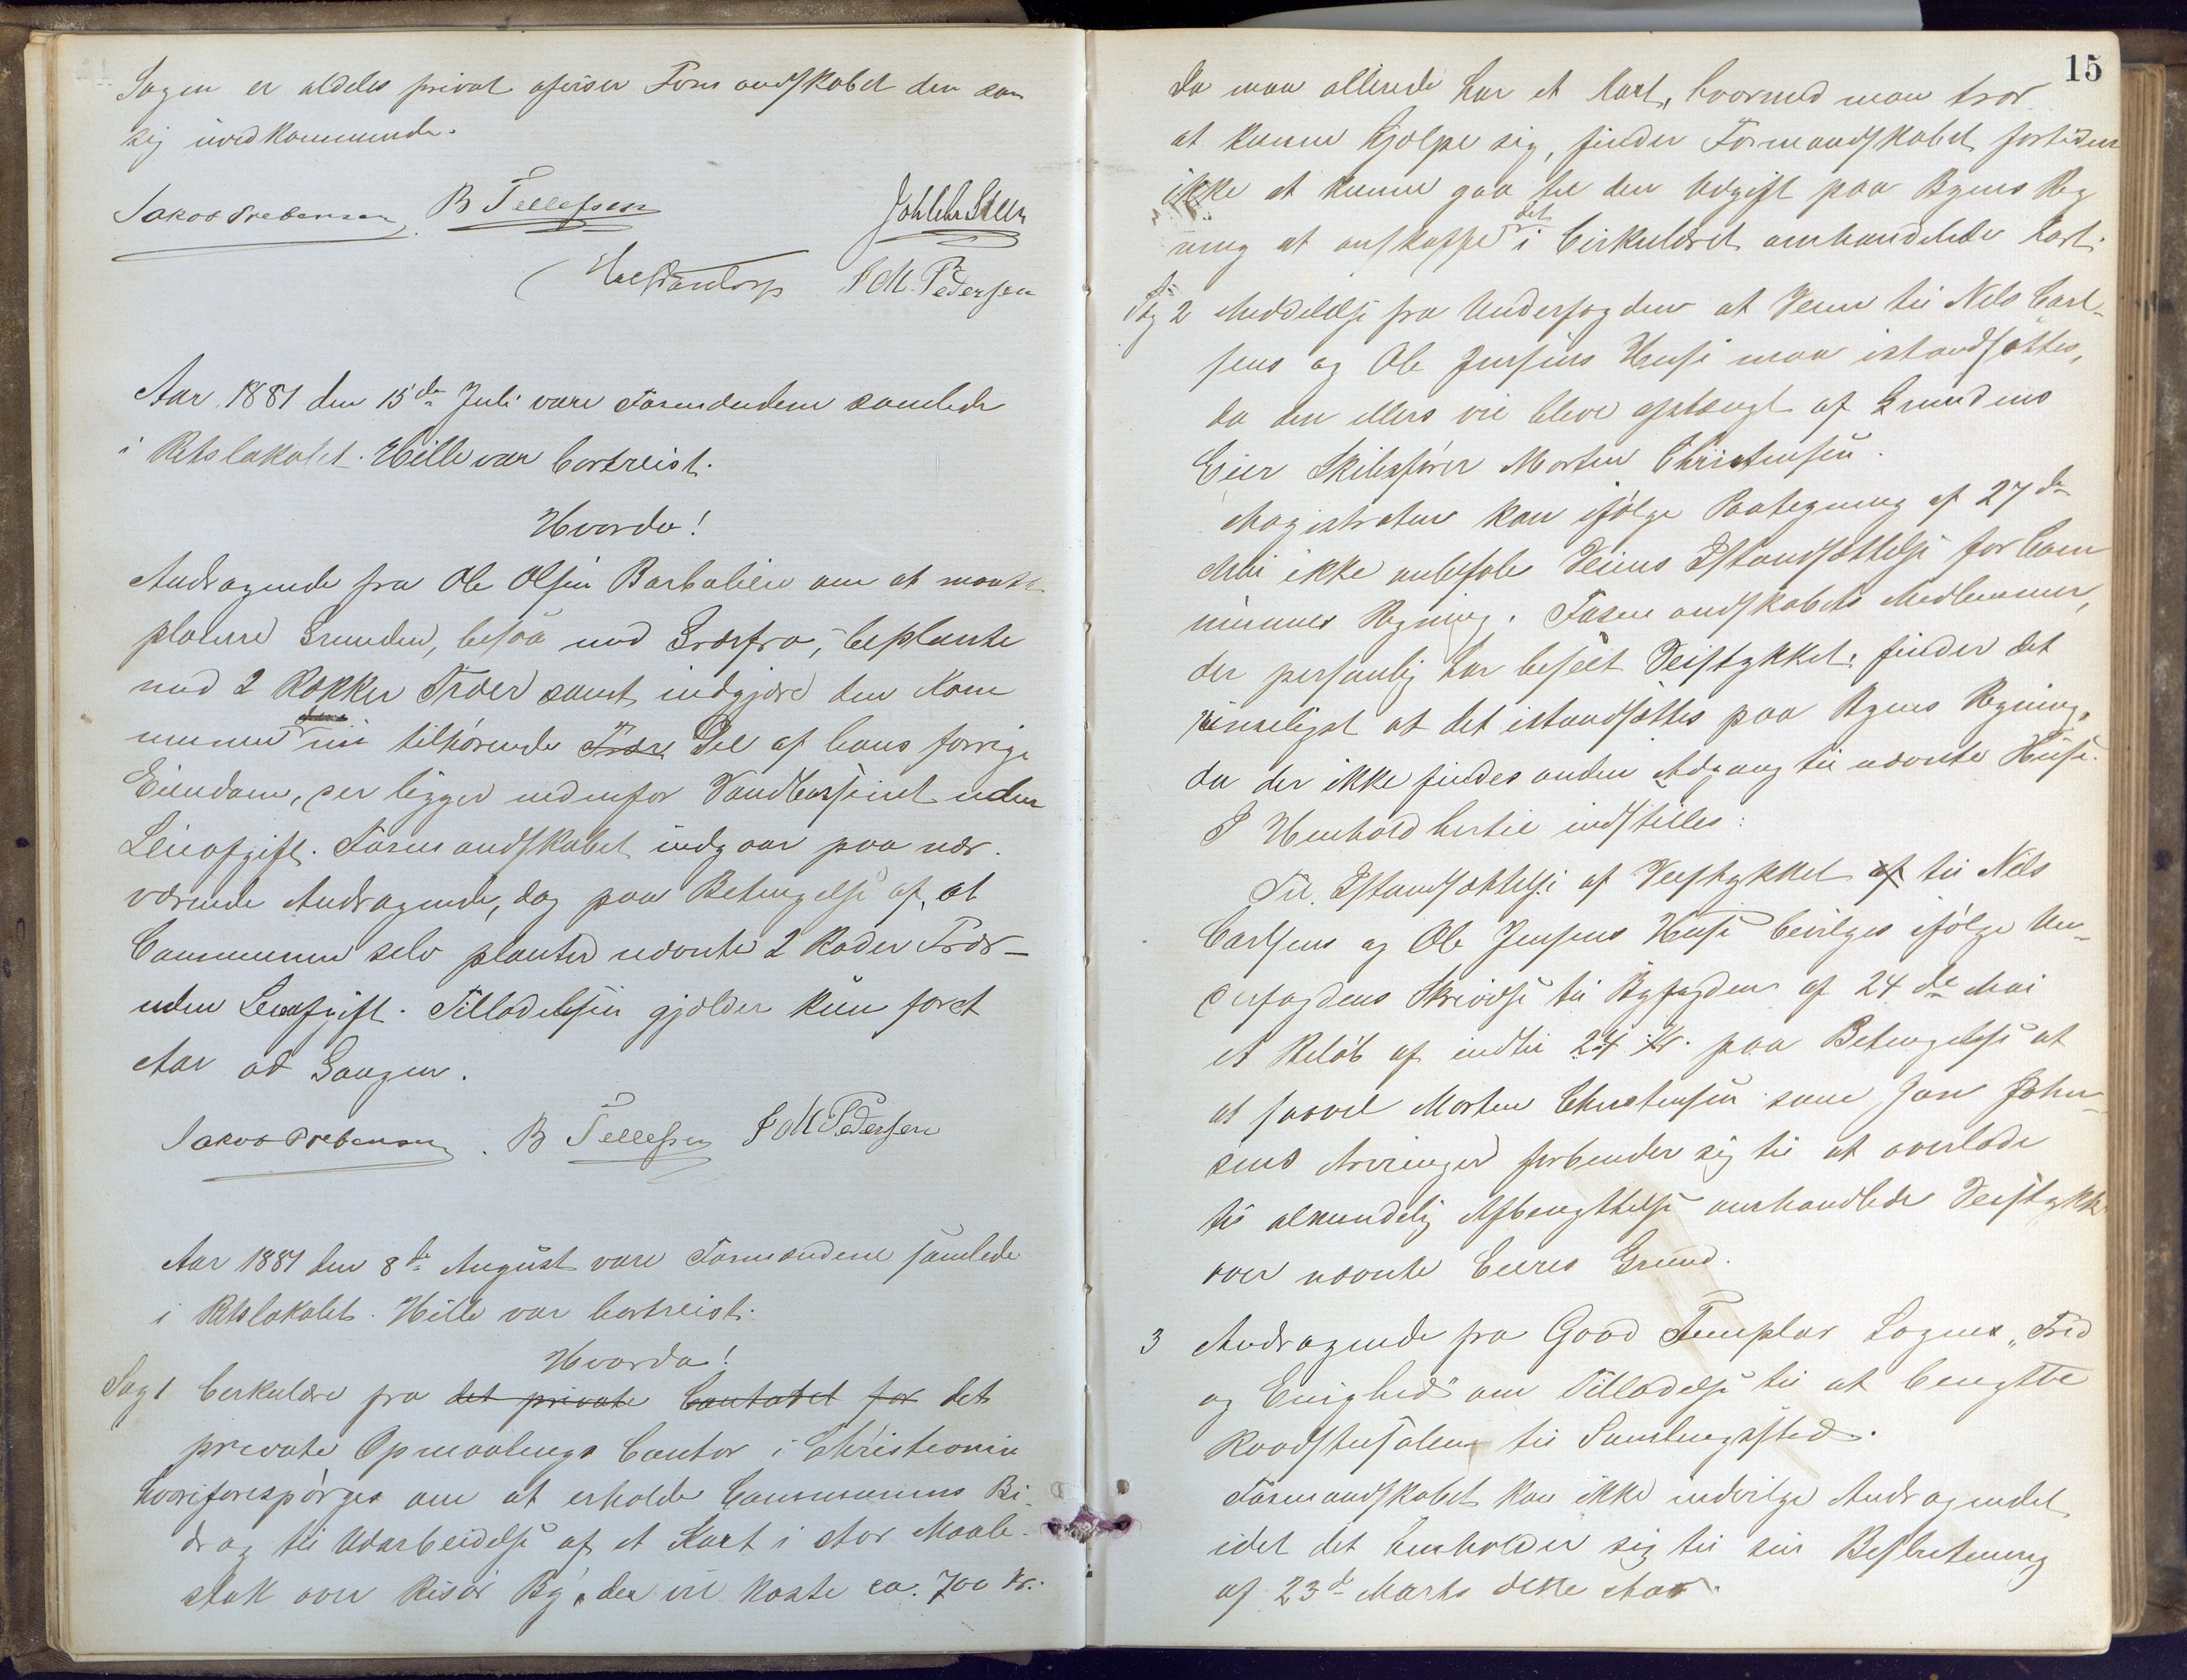 Sagen er aldeles privat afviser Formandskabet den som
sig uvedkommende.
Jakob Prebensen B Tellefsen Joh Chr Steen
J M. Pedersen
Aar 1881 den 15de Juli vare Formændene samlede
i Retslokalet. Hille var bortreist.
Hvorda!
Andragende fra Ole Olsen Barbalien om at maatte
planere Grunden, besaa med Græsfrø, beplante
med 2 Rækker Træer samt indgjære den Kom
munen nu tilhørende Træer Del af hans forrige
Eiendom, der ligger nedenfor Vandbassinet uden
Leieafgift. Formandskabet indgaar paa nær-
værende Andragende, dog paa Betingelse af, at
Communen selv planter nævnte 2 Rader Trær-
uden Leieafgift. Tilladelsen gjælder kun foret
Aar ad Gangen.
Jakob Prebensen. B Tellefsen J M Pedersen
Aar 1881 den 8de August vare Formændene samlede
i Retslokalet. Hille var bortreist.
Hvorda!
Sag 1 Cirkulære fra det private Contoret for det
private Opmaalings Contor i Christiania
hvori forespørges om at erholde Communens Bi-
drag til Udarbeidelse af et Kart i stor Maale-
stok over Risør By, der vil koste ca. 700 Kr.
15
Da man allerede har et Kart, hvormed man tror
at kunne hjælpe sig, finder Formandskabet fortiden
ikke at kunne gaa til den Udgift paa Byens Reg
ning at anskaffe det i Cirkulæret omhandlede Kart.
Sag 2 Meddelelse fra Underfogden at Veien til Nils Carl-
sens og Ole Jensens Huse maa istandsættes,
da den ellers vil blive afstængt af Grundens
Eier Skibsfører Morten Christensen.
Magistraten kan ifølge Paategning af 27de
Mai ikke anbefale Veiens Istandsættelse for Com
munens Regning. Formandskabets Medlemmer,
der personlig har beseet Veistykket, finder det
rimeligst at det istandsættes paa Byens Regning,
da der ikke findes anden Adgang til nævnte Huse.
I Henhold hertil indstilles:
Til Istandsættelse af Veistykket af til Nils
Carlsens og Ole Jensens Huse bevilges ifølge Un-
derfogdens Skrivelse til Byfogden af 24de Mai
et Beløb af indtil 24 Kr. paa Betingelse at
at saavel Morten Christensen som Jan John-
sens Arvinger forbinder sig til at overlade
til almindelig Afbenyttelse omhandlede Veistykke
over nævnte Eieres Grund.
3 Andragende fra Good Templar Logens „Fred
og Enighed" om Tilladelse til at benytte
Raadstusalen til Samlingssted.
Formandskabet kan ikke indvilge Andragendet
idet det henholder sig til sin Beslutning
af 23de Marts dette Aar.